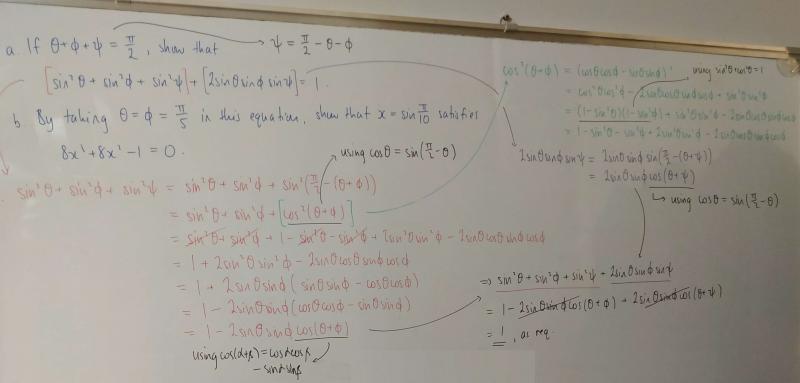 a. If θ+φ+ψ = π/2, show that → ψ = π/2 - θ - φ
[sin²θ + sin²φ + sin²ψ] + [2sinθsinφ sinψ] = 1.
b. By taking θ = φ = π/5 in this equation, show that x = sin π/10 satisfies
8x³ + 8x² - 1 = 0.
using cosθ = sin(π/2 - θ)
sin²θ + sin²φ + sin²ψ = sin²θ + sin²φ + sin²(π/2 - (θ+φ))
= sin²θ + sin²φ + [cos²(θ+φ)]
= sin²θ + sin²φ + 1 - sin²θ - sin²φ + 2sin²θsin²φ - 2sinθcosθsinφcosφ
= 1 + 2sin²θsin²φ - 2sinθcosθsinφcosφ
= 1 + 2sinθsinφ (sinθsinφ - cosθcosφ)
= 1 - 2sinθsinφ (cosθcosφ - sinθsinφ)
= 1 - 2sinθsinφ cos(θ+φ)
using cos(α+β) = cosαcosβ
- sinαsinβ
cos²(θ+φ) = (cosθcosφ - sinθsinφ)²
using sin²θ+cos²θ = 1
= cos²θcos²φ - 2sinθcosθsinφcosφ + sin²θsin²φ
= (1-sin²θ)(1-sin²φ) + sin²θsin²φ - 2sinθcosθsinφcosφ
= 1 - sin²θ - sin²φ + 2sin²θsin²φ - 2sinθcosθsinφcosφ
2sinθsinφsinψ = 2sinθsinφ sin(π/2 - (θ+ψ))
= 2sinθsinφ cos(θ+ψ)
↳ using cosθ = sin(π/2 - θ)
⇒ sin²θ + sin²φ + sin²ψ + 2sinθsinφsinψ
= 1 - 2sinθsinφcos(θ+φ) + 2sinθsinφcos(θ+ψ)
= 1, as req.